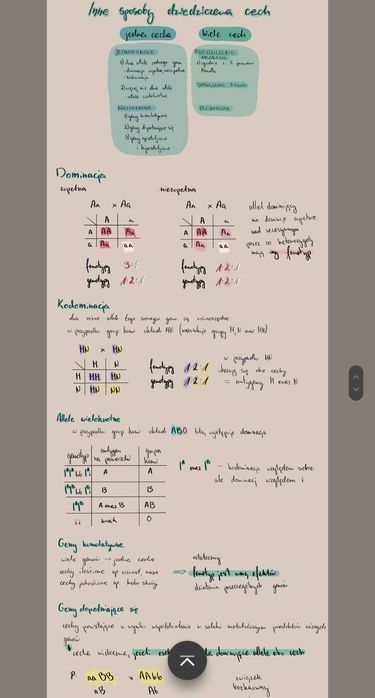 Inne sposoby dziedziczenia cech
jedna cecha
wiele cech
JEDNOGENOWE
1) dwa allele jednego genu
- dominacja zupełna/niezupełna
- kodominacja
2) więcej niż dwa allele
- allele wielokrotne
WIELOGENOWE
1) geny kumulatywne
2) geny dopełniające się
3) geny epistatyczne
- hipostatyczne
DZIEDZICZENIE
NIEZALEŻNE
zgodnie z II prawem
Mendla
SPRZĘŻENIE GENÓW
PLEJOTROPIA
Dominacja
zupełna
niezupełna
Aa x Aa
Aa x Aa
A a
A AA Aa
a Aa aa
A a
A AA Aa
a Aa aa
fenotypy 3:1
genotypy 1:2:1
fenotypy 1:2:1
genotypy 1:2:1
allel dominujący
nie dominuje zupełnie
nad recesywnym
przez co heterozygoty
mają inny fenotyp
Kodominacja
dwa różne allele tego samego genu są równorzędne
w przypadku grup krwi układu MN (warunkuje grupy M, N oraz MN)
MN x MN
M N
M MM MN
N MN NN
fenotypy 1:2:1
genotypy 1:2:1
w przypadku MN
ujawniają się obie cechy
= antygeny M oraz N
Allele wielokrotne
w przypadku grup krwi układu AB0
genotyp
antygen
na powierzchni
grupa
krwi
A A
B B
A oraz B AB
ii brak 0
Iᴬ oraz Iᴮ - kodominacja względem siebie
ale dominacja względem i
Geny kumulatywne
wiele genów → jedna cecha
cechy ilościowe np wzrost, masa
cechy jakościowe np kolor skóry
ostateczny
=> fenotyp jest sumą efektów
działania poszczególnych genów
Geny dopełniające się
cechy powstające w wyniku współdziałania w szlaku metabolicznym produktów różnych
genów
cecha widoczna, jeśli dominujące allele obu cech
P: aaBB x AAbb
aB Ab
związek
bezbarwny